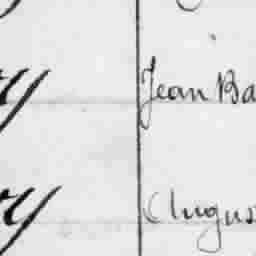 ry Jean Ba
ry Augus